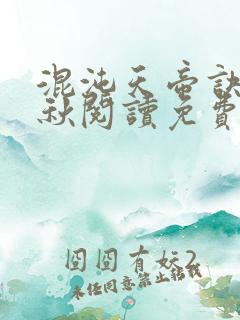 混沌天帝訣
秋閱讀免費
囧囧有妖2
未经同意禁止转载